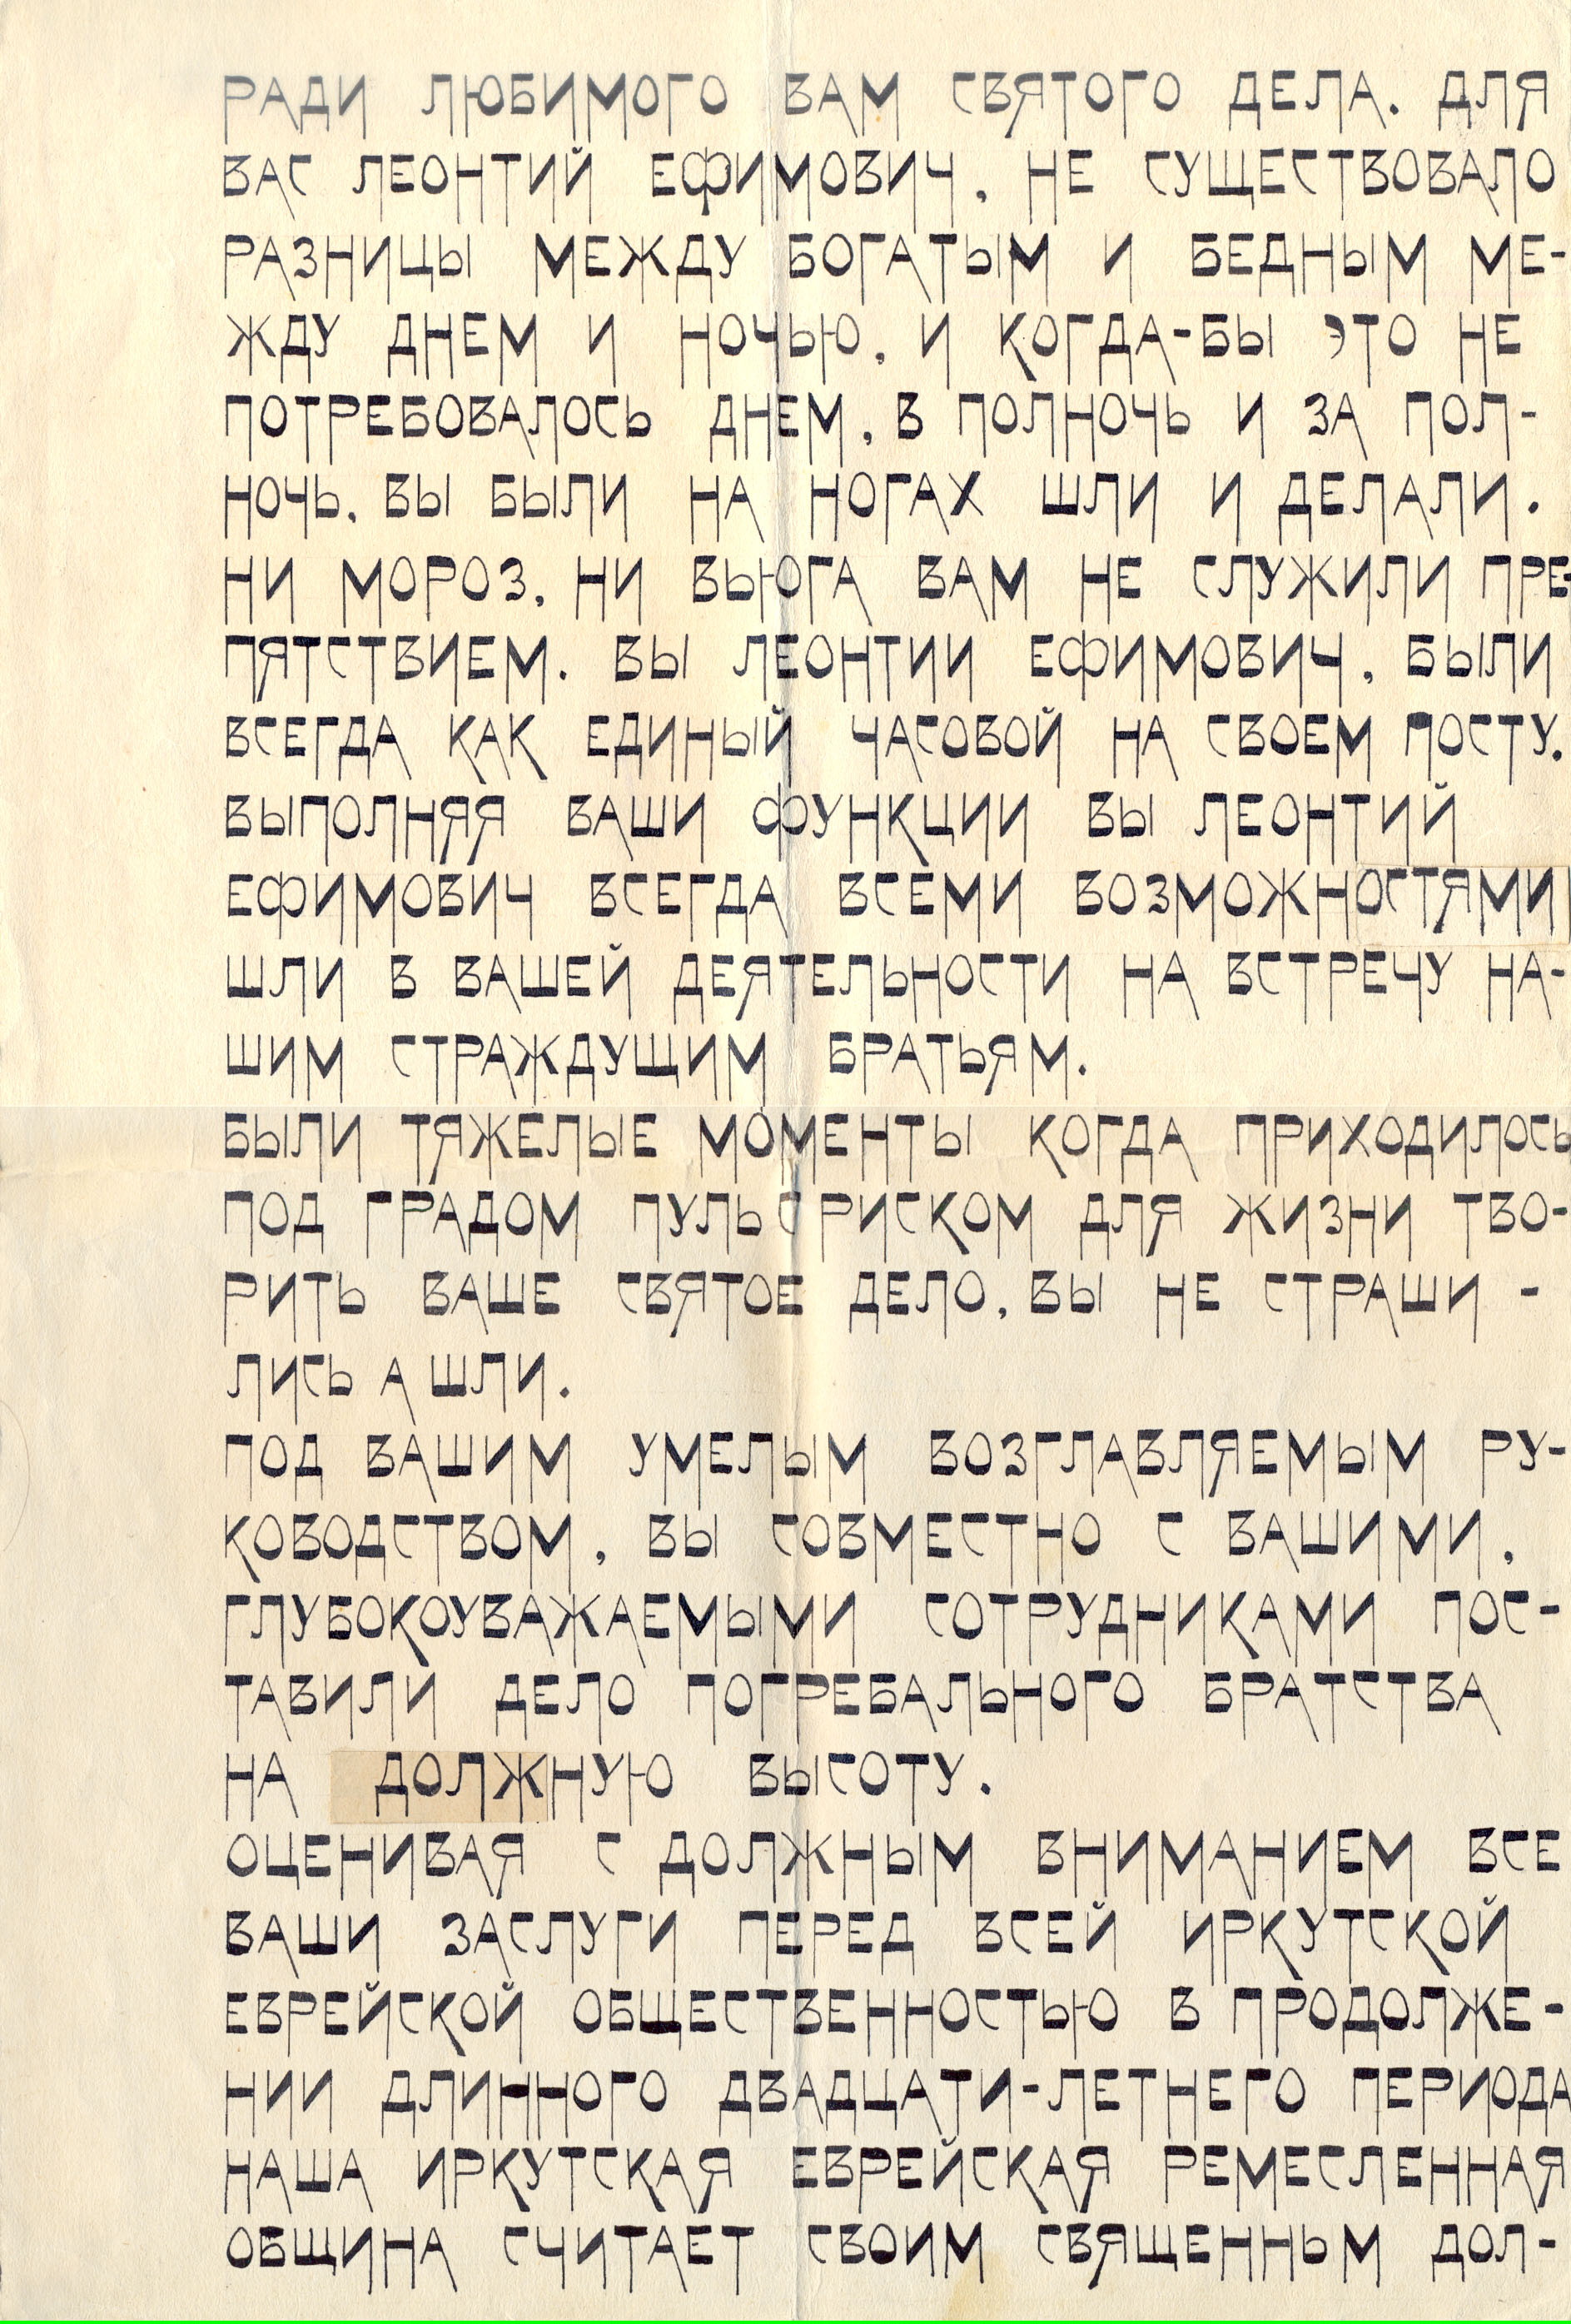 РАДИ ЛЮБИМОГО ВАМ СВЯТОГО ДЕЛА. ДЛЯ
ВАС ЛЕОНТИЙ ЕФИМОВИЧ, НЕ СУЩЕСТВОВАЛО
РАЗНИЦЫ МЕЖДУ БОГАТЫМ И БЕДНЫМ МЕ-
ЖДУ ДНЕМ И НОЧЬЮ, И КОГДА-БЫ ЭТО НЕ
ПОТРЕБОВАЛОСЬ ДНЕМ, В ПОЛНОЧЬ И ЗА ПОЛ-
НОЧЬ, ВЫ БЫЛИ НА НОГАХ ШЛИ И ДЕЛАЛИ.
НИ МОРОЗ, НИ ВЬЮГА ВАМ НЕ СЛУЖИЛИ ПРЕ-
ПЯТСТВИЕМ. ВЫ ЛЕОНТИИ ЕФИМОВИЧ, БЫЛИ
ВСЕГДА КАК ЕДИНЫЙ ЧАСОВОЙ НА СВОЕМ ПОСТУ.
ВЫПОЛНЯЯ ВАШИ ФУНКЦИИ ВЫ ЛЕОНТИЙ
ЕФИМОВИЧ ВСЕГДА ВСЕМИ ВОЗМОЖНОСТЯМИ
ШЛИ В ВАШЕЙ ДЕЯТЕЛЬНОСТИ НА ВСТРЕЧУ НА-
ШИМ СТРАЖДУЩИМ БРАТЬЯМ.
БЫЛИ ТЯЖЕЛЫЕ МОМЕНТЫ КОГДА ПРИХОДИЛОСЬ
ПОД ГРАДОМ ПУЛЬ С РИСКОМ ДЛЯ ЖИЗНИ ТВО-
РИТЬ ВАШЕ СВЯТОЕ ДЕЛО, ВЫ НЕ СТРАШИ -
ЛИСЬ А ШЛИ.
ПОД ВАШИМ УМЕЛЫМ ВОЗГЛАВЛЯЕМЫМ РУ-
КОВОДСТВОМ, ВЫ СОВМЕСТНО С ВАШИМИ,
ГЛУБОКОУВАЖАЕМЫМИ СОТРУДНИКАМИ ПОС-
ТАВИЛИ ДЕЛО ПОГРЕБАЛЬНОГО БРАТСТВА
НА ДОЛЖНУЮ ВЫСОТУ.
ОЦЕНИВАЯ С ДОЛЖНЫМ ВНИМАНИЕМ ВСЕ
ВАШИ ЗАСЛУГИ ПЕРЕД ВСЕЙ ИРКУТСКОЙ
ЕВРЕЙСКОЙ ОБЩЕСТВЕННОСТЬЮ В ПРОДОЛЖЕ-
НИИ ДЛИННОГО ДВАДЦАТИ-ЛЕТНЕГО ПЕРИОДА
НАША ИРКУТСКАЯ ЕВРЕЙСКАЯ РЕМЕСЛЕННАЯ
ОБЩИНА СЧИТАЕТ СВОИМ СВЯЩЕННЬМ ДОЛ-